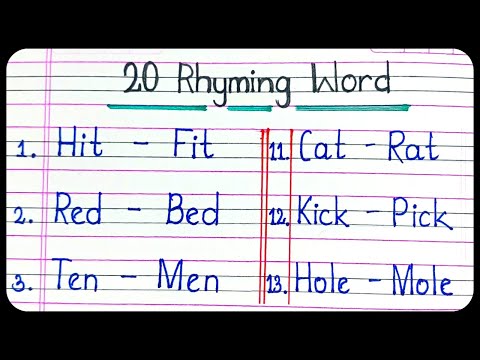 20 Rhyming Word
1. Hit - Fit
2. Red - Bed
3. Ten - Men
11. Cat - Rat
12. Kick - Pick
13. Hole - Mole